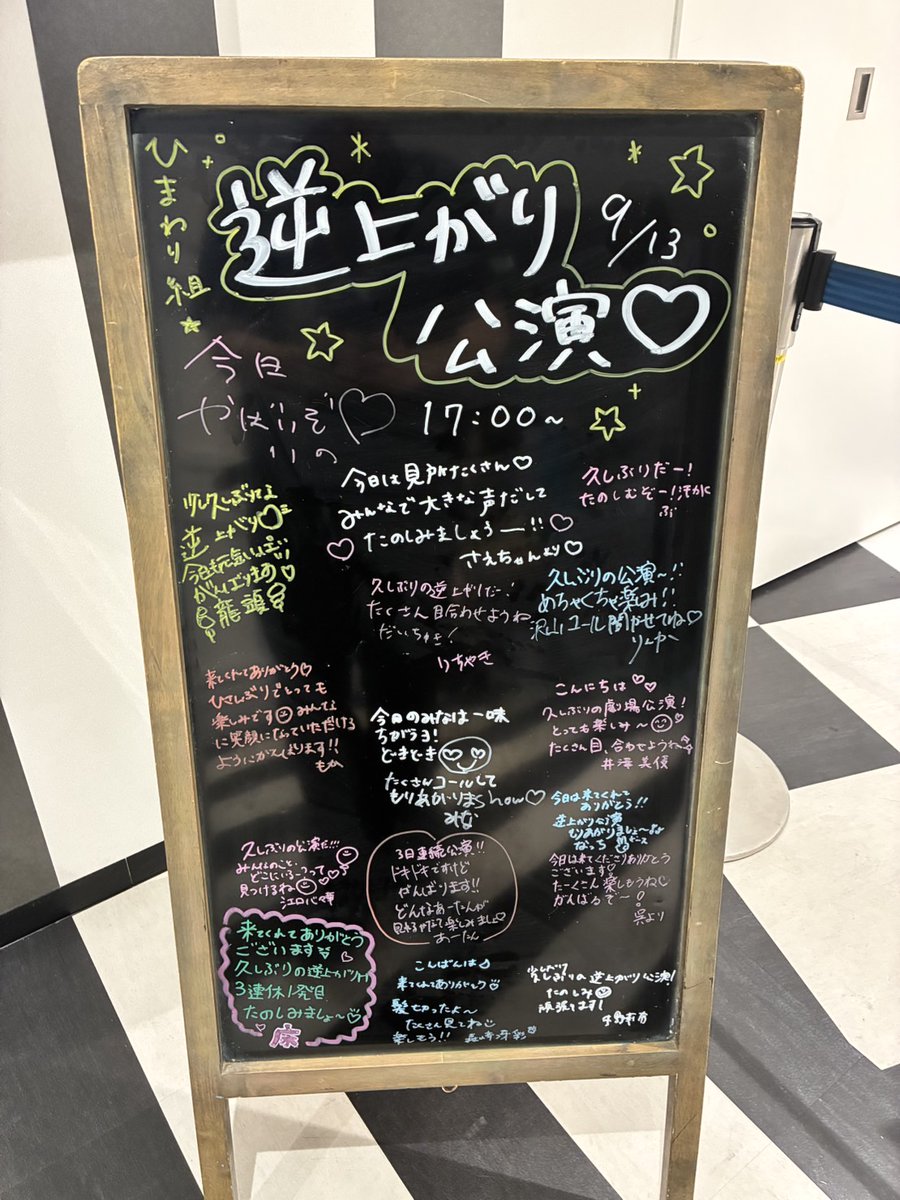 ひまわり組
逆上がり
公演♡
9/13
今日
やばいぞ♡
りの
17:00~
今日は見所たくさん♡
みんなで大きな声だして
たのしみましょうー!!♡
さえちゃんより♡
久しぶりだー!
たのしむぞー!
少し久しぶりてる
逆上がり
今日も元気いっぱい
がんばります
龍頭
久しぶりの逆上がりだー!
たくさん目合わせようね
だいちゅき!
りちゃき
久しぶりの公演~!!
めちゃくちゃ楽み!!
沢山コール聞かせてね♡
りーやー
来てくれてありがとう♡
ひさしぶりでとっても
楽しみです みんな
に笑顔になっていただける
ようにがんばります!!
もか
今日のみなは一味
ちがうヨ!
どきどき
たくさんコールして
もりあがりましhow♡
みな
こんにちは♡♡
久しぶりの劇場公演!
とっても楽しみ~
たくさん目、合わせようね
井澤美優
今日は来てくれて
ありがとう!!
逆上がり公演
もりあがりましょ~な
なっち
今日は来てくださりありがとう
ございます
たーくさん楽しもうね
がんばるぞ~!
呉より
久しぶりの公演だ!!!
みんなのこと、
どこにいるーつって
見つけるね
江口心愛
3日連続公演!!
ドキドキですけど
がんばります!!
どんなあーたんが
見れるかなで楽しみましょ
あーたん
来てくれてありがとう
ございます
久しぶりの逆上がり
3連休1発目
たのしみましょ~♡
康
こんばんは
来てくれてありがとう
髪切ったよ~
たくさん見てね
楽しもう!!
久しぶりの逆上がり公演!
たのしみ
頑張ります!